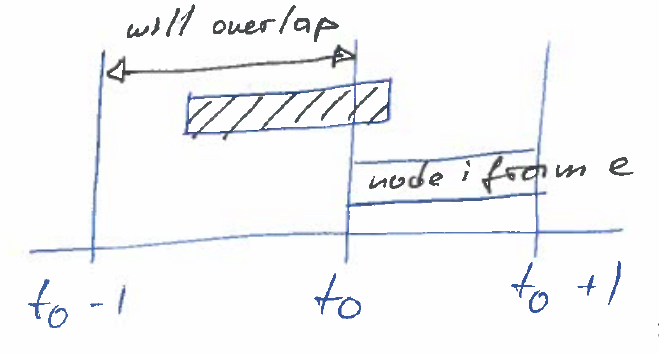 will overlap
node i frame
t0 -1
t0
t0 +1